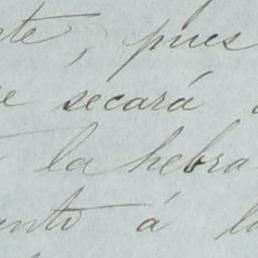 te, pues
e secará
la hebra
anto á l